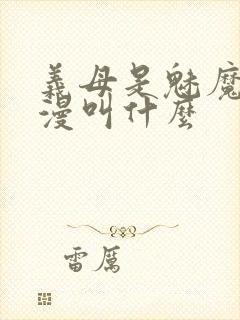 義母是魅魔
漫叫什麼
雷厲